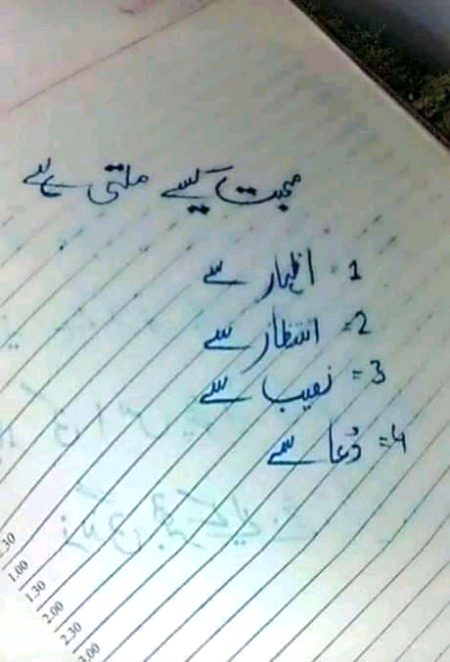 محبت کیسے ملتی ہے
1 = اظہار سے
2 = انتظار سے
3 = نصیب سے
4 = دُعا سے
.30
1.00
1.30
2.00
2.30
3.00